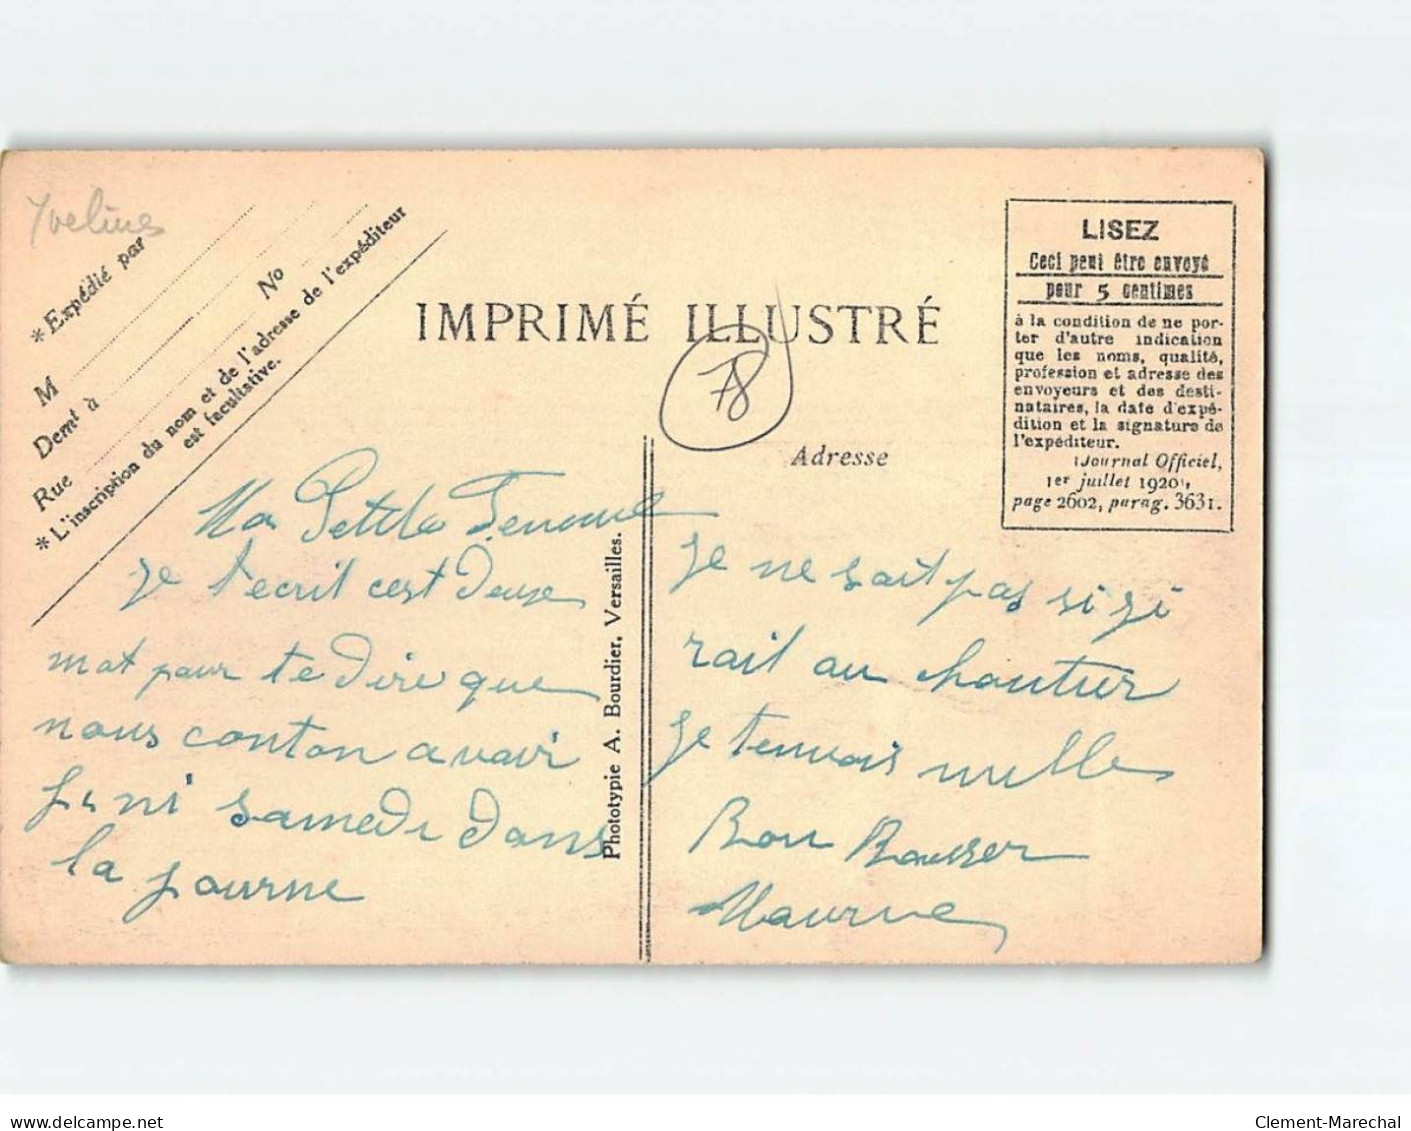 Yvelines
* Expédié par
M
Demt à
Rue
No
* L'inscription du nom et de l'adresse de l'expéditeur
est facultative.
IMPRIMÉ ILLUSTRÉ
78
LISEZ
Ceci peut être envoyé
pour 5 centimes
à la condition de ne por-
ter d'autre indication
que les noms, qualité,
profession et adresse des
envoyeurs et des desti-
nataires, la date d'expé-
dition et la signature de
l'expéditeur.
(Journal Officiel,
1er juillet 1920),
page 2602, parag. 3631.
Adresse
Ma
je t'ecrit cest deux
mot pour te dire que
nous conton avoir
fini samedi dans
la journe
Phototypie A. Bourdier, Versailles.
je ne sait pas si ji
rait au chantier
je tenvois mille
Bon Baisser